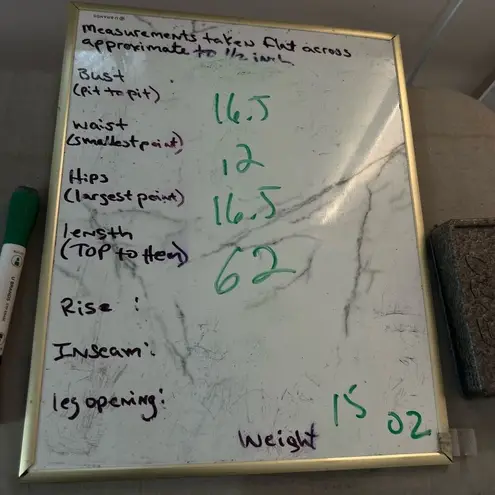 measurements taken flat across
approximate to 1/2 inch
Bust :
(pit to pit)
16.5
waist
(smallest point)
12
Hips
(largest point)
16.5
length
(TOP to Hem)
62
Rise :
Inseam:
leg opening:
Weight 15 oz